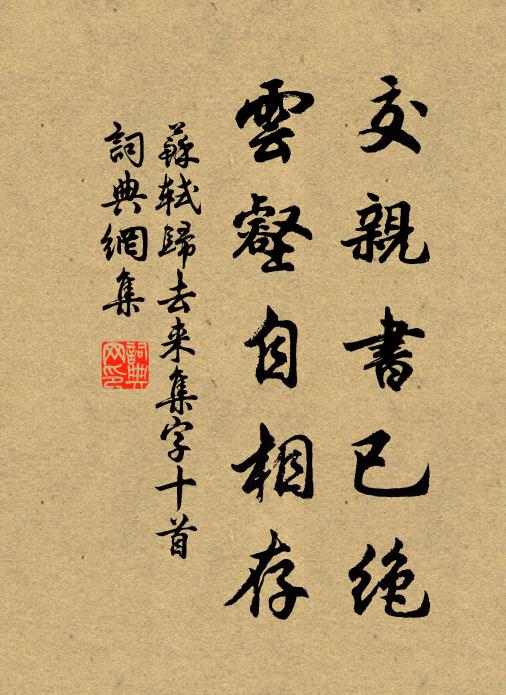 交親書已絶
雲壑自相存
蘇軾歸去来集字十首
詞典網集
詞典网印